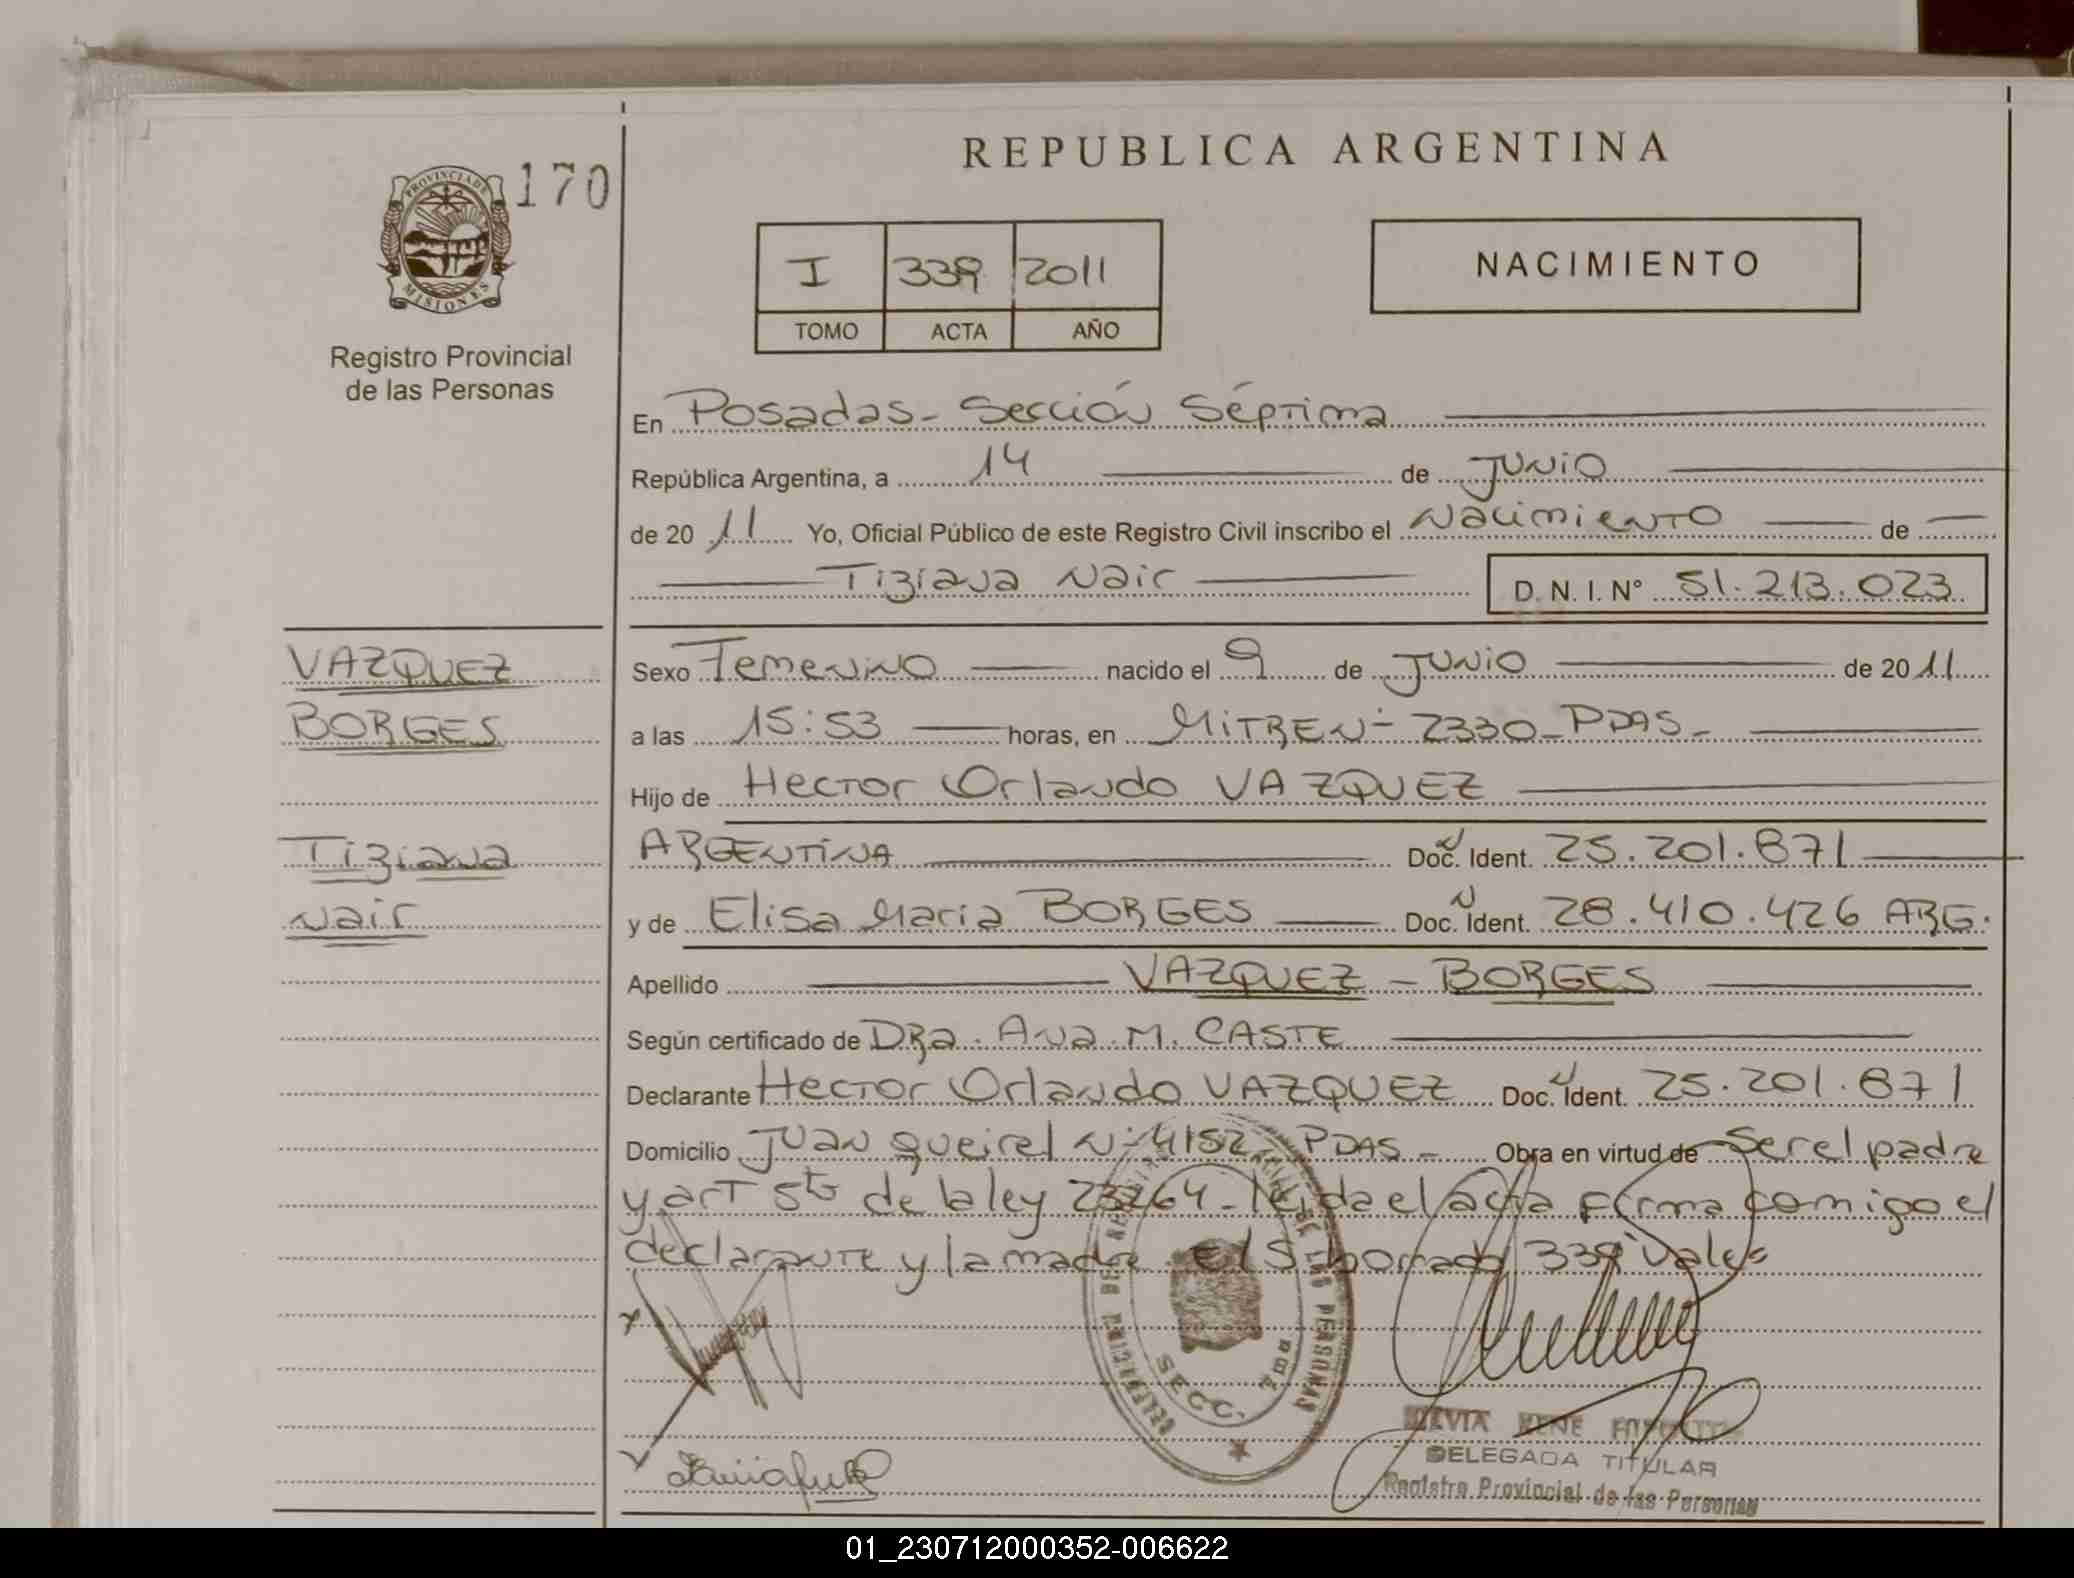 REPUBLICA ARGENTINA
170
PROVINCIA DE
MISIONES
Registro Provincial
de las Personas
I 339 2011
TOMO ACTA AÑO
NACIMIENTO
En Posadas - Sección Séptima
República Argentina, a 14 de Junio
de 2011 Yo, Oficial Público de este Registro Civil inscribo el Nacimiento de
Tiziana Nair D. N. I. N° 51.213.023
VAZQUEZ
BORGES
Tiziana
Nair
Sexo Femenino nacido el 9 de Junio de 2011
a las 15:53 horas, en MITRE N- 2330 - PDAS -
Hijo de Hector Orlando VAZQUEZ
ARGENTINA Doc. Ident. 25.201.871
y de Elisa Maria BORGES Doc. Ident. 28.410.426 ARG.
Apellido VAZQUEZ - BORGES
Según certificado de DRa. Ana M. CASTE
Declarante Hector Orlando VAZQUEZ Doc. Ident. 25.201.871
Domicilio Juan Queirel N- 4152 PDAS - Obra en virtud de Ser el padre
y art 5to de la ley 23264 - leida el acta firma comigo el
declarante y la madre. El S/borrado 339 Vale
SECC. 7ma
DELEGADA TITULAR
Registro Provincial de las Personas
01_230712000352-006622